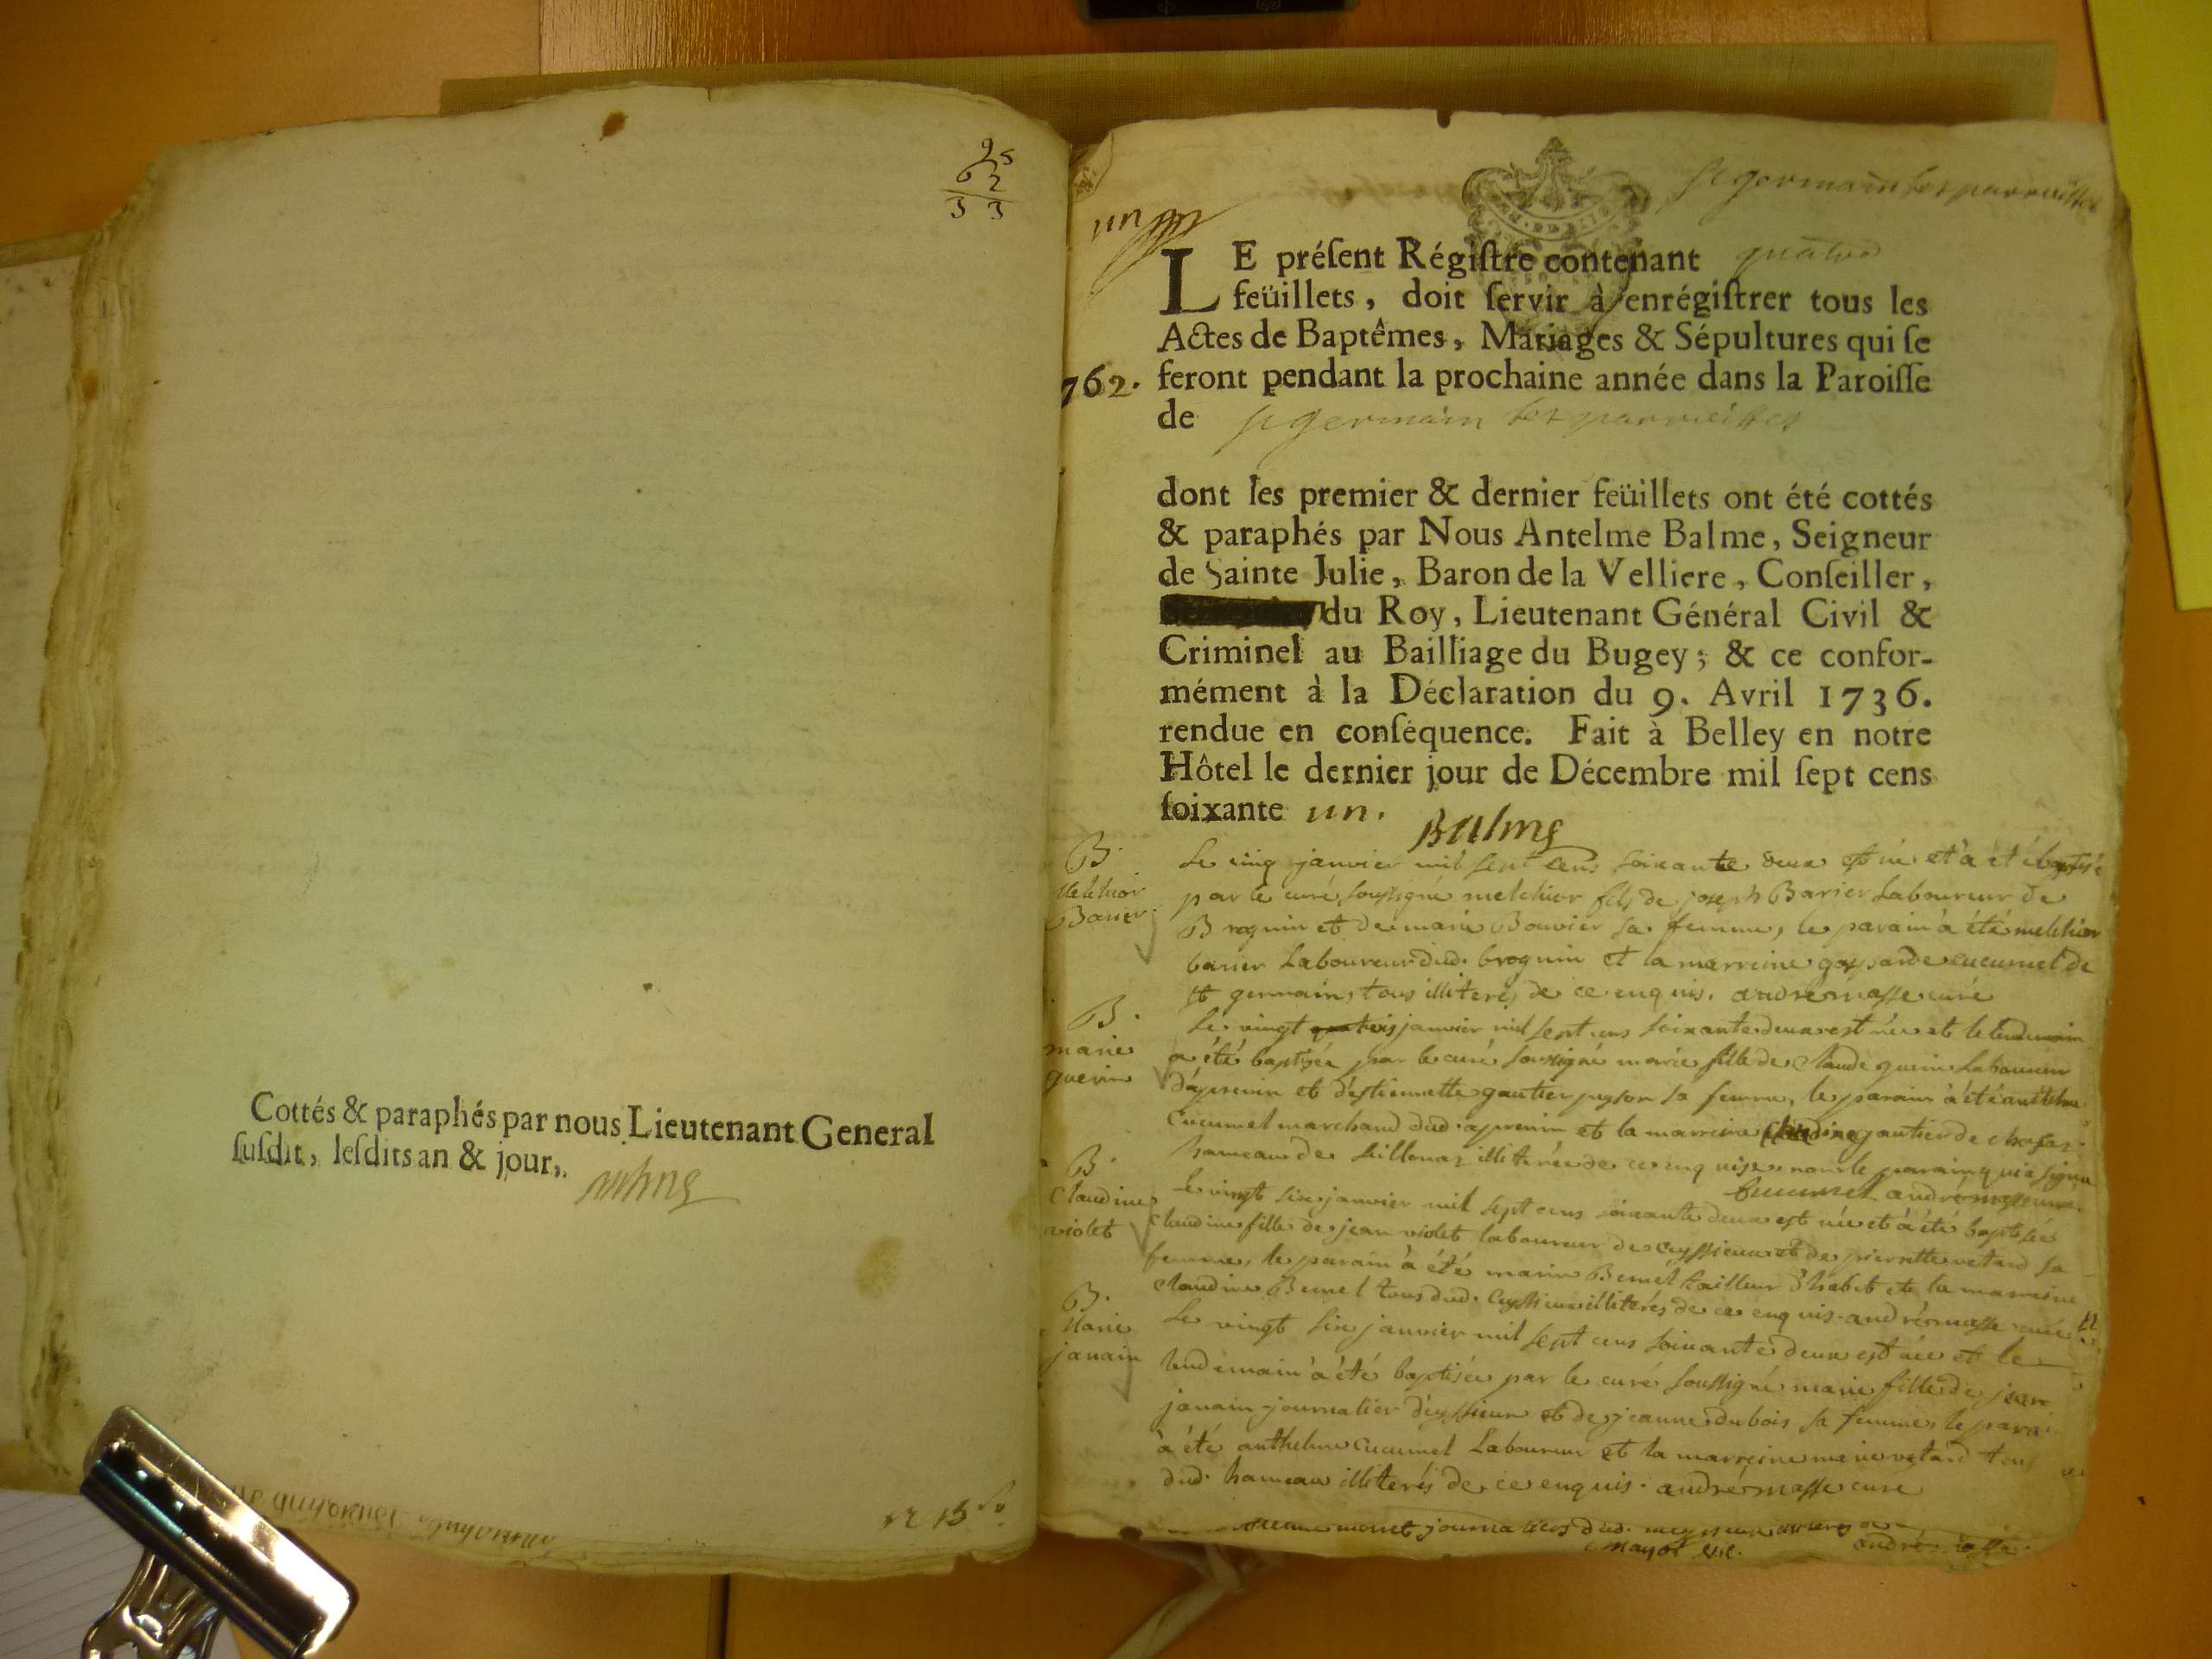 95
62
33
Cottés & paraphés par nous Lieutenant General
ſuſdit, leſdits an & jour,
un
St germain les parroisses
LE préſent Régiſtre contenant quatre
feüillets, doit ſervir à enrégiſtrer tous les
Actes de Baptêmes, Mariages & Sépultures qui ſe
762. feront pendant la prochaine année dans la Paroiſſe
de St germain les parroisses
dont les premier & dernier feüillets ont été cottés
& paraphés par Nous Antelme Balme, Seigneur
de Sainte Julie, Baron de la Velliere, Conſeiller,
du Roy, Lieutenant Général Civil &
Criminel au Bailliage du Bugey; & ce confor-
mément à la Déclaration du 9. Avril 1736.
rendue en conſéquence. Fait à Belley en notre
Hôtel le dernier jour de Décembre mil ſept cens
ſoixante un.
Balme
B.
Melchior
Barier
Le cinq janvier mil sept cens soixante deux est né et a été baptisé
par le curé soussigné melchior fils de joseph Barier Laboureur de
Brognin et de marie Bouvier sa femme, le parain à été melchior
barier Laboureur dud. brognin et la marreine cucumel de
st germain, tous illiterés de ce enquis. andré masse curé
B.
marie
guerin
Le vingt trois janvier mil sept cens soixante deux est née et le lendemain
a été baptisée par le curé soussigné marie fille de Claude guerin Laboureur
d'apremin et d'estiennette gautier sa femme, le parain à été anthelme
Cucumel marchand dud. apremin et la marreine Claudine gautier de
hameau de illiterée de ce enquise non le parain qui a signé
Cucumel andré masse curé
B.
Claudine
violet
Le vingt six janvier mil sept cens soixante deux est née et à été baptisée
claudine fille de jean violet laboureur de Ceyssieux et de pierrette vetard sa
femme, le parain à été marin Bemel tailleur d'habit et la marreine
claudine Bemel tous dud. Ceyssieux illiterés de ce enquis. andré masse curé
B.
Marie
janain
Le vingt six janvier mil sept cens soixante deux est née et le
lendemain à été baptisée par le curé soussigné marie fille de jean
janain journalier d'eyssieux et de jeanne dubois sa femme, le parai
à été anthelme Cucumel Laboureur et la marreine marie vetard tous
dud. hameau illiterés de ce enquis. andré masse curé
journaliers dud.
andré masse